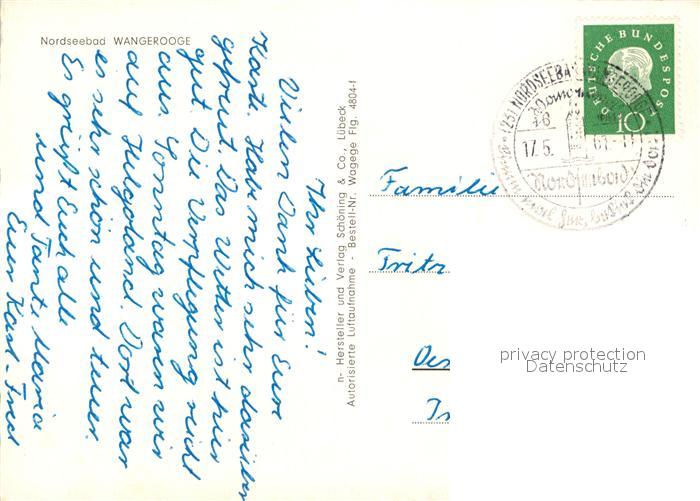 Nordseebad WANGEROOGE
Ihr Lieben!
Vielen Dank für Eure
Karte. Habe mich sehr darüber
gefreut. Das Wetter ist hier
gut. Die Verpflegung reicht
aus. Sonntag waren wir
auf Helgoland. Dort war
es sehr schön und teuer.
Es grüßt Euch alle
und Tante Maria
Euer Karl-Fred
n- Hersteller und Verlag Schöning & Co., Lübeck
Autorisierte Luftaufnahme - Bestell-Nr. Wagege Flg. 4804-f
DEUTSCHE BUNDESPOST
10
(23) NORDSEEBAD WANGEROOGE
17.5.
61-11
Nordseebad
Familie
Fritz
privacy protection
Datenschutz